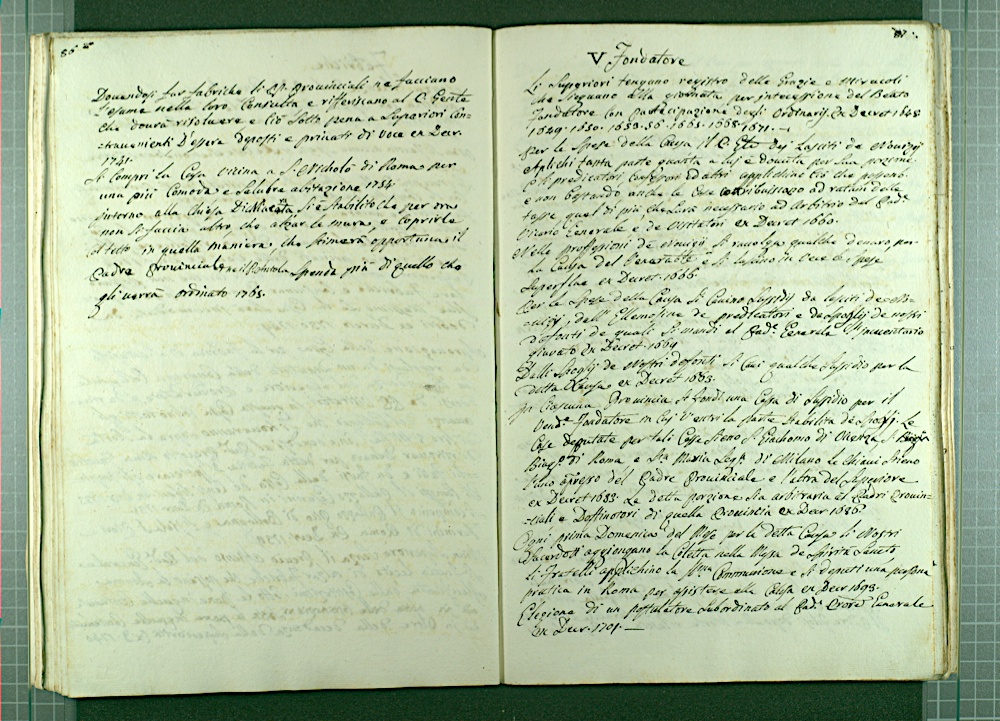 86
Dovendosi far fabriche li PP. Provinciali ne facciano
l'esame nella loro Consulta e riferiscano al C. Gente
che dovrà risolvere e ciò sotto pena a Superiori con-
travenienti d'essere deposti e privati di voce ex Decr.
1741.
Si compri la Casa vicina a S. Nicholò di Roma per
una più Comoda e salubre abitazione 1754
Intorno alla Chiesa di si è stabilito che per ora
non si faccia altro, che alzar le mura, e coprirle
di tetto in quella maniera, che stimerà opportuna il
Padre Provinciale, ne il spenda più di quello che
gli verrà ordinato 1765.
87
V Fondatore
Li Superiori tengano registro delle Grazie e Miracoli
che sieguano alla giornata per intercessione del Beato
Fondatore con participazione degli Ordinarij ex Decret 1648
1649. 1650. 1653. 56. 1665. 1668. 1671.
Per le spese della Causa il C. Gte dei Lasciti de Novizij
Applichi tanta parte quanta a lui è dovuta per sua porzione
così predicatori confessori ed altri applichino ciò che possono
e non bastando anche le Case contribuiscano ad ratam delle
tasse quel di più che sarà necessario ad arbitrio del Padre
Vicario Generale e de Visitatori ex Decret 1660.
Nelle professioni de Novizij si raccolga qualche denaro, per
la Causa del Venerante e si lascino in vece le spese
superflue ex Decret. 1666.
Per le spese della Causa si Cavino sussidij da lasciti de No-
vizij, dall' Elemosine de predicatori e da spoglij de nostri
defonti de quali si mandi al Pad.e Generale l'Inventario
giurato ex Decret. 1669
Dalli spoglij de Nostri defonti si Cavi qualche sussidio per la
detta Causa ex Decret 1683.
In Ciascuna Provincia si fondi una Cassa di sussidio per il
Vend.e Fondatore in cui v'entri la parte stabilita de spoglij. Le
Case deputate per tali Casse sieno S. Giachomo di Vicenza, S.
Biag.o di Roma e Sta Maria Seg.a di Milano le Chiavi sieno
una apresso del Padre Provinciale e l'altra del Superiore
ex Decret 1683. La detta porzione sia arbitraria ai Padri Provin-
ciali e Deffinitori di quella Provincia ex Decr 1686.
Ogni prima Domenica del Mese per la detta Causa li Nostri
Sacerdoti aggiungano la Coletta nella Messa de Spiritu Sancto
li Fratelli applichino la SSma Communione e si deputi una persona
pratica in Roma per assistere alla Causa ex Decr 1693.
Elezione di un postulatore subordinato al Pad.e Procr.e Generale
ex Decr. 1701.